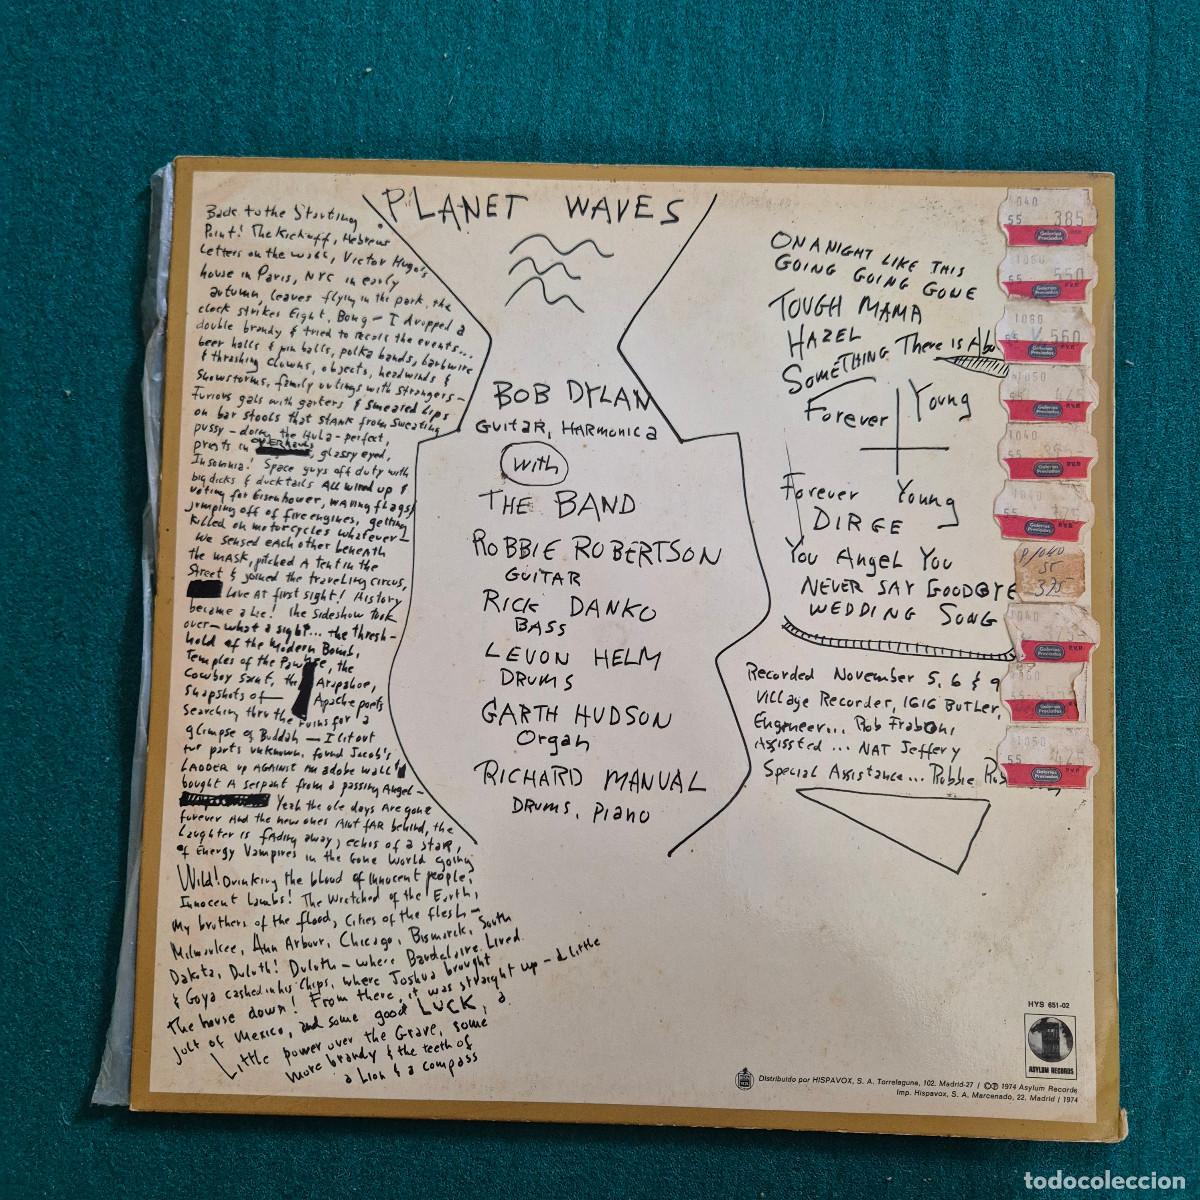 PLANET WAVES
Back to the Starting
Point! The Kickoff, Hebrew
Letters on the wall, Victor Hugo's
house in Paris, NYC in early
autumn, leaves flying in the park, the
clock strikes Eight, Bong – I dropped a
double brandy & tried to recall the events...
beer halls & pin balls, polka bands, barbwire
& thrashing clowns, objects, headwinds &
Snowstorms, family outings with strangers –
Furious gals with garters & Smeared Lips
on bar stools that stank from Sweating
pussy – doing the Hula – perfect,
priests in OVERHAULS, glassy eyed,
Insomnia! Space guys off duty with
big dicks & duck tails All wired up &
voting for Eisenhower, waving flags &
jumping off of fire engines, getting
Killed on motorcycles whatever –
We sensed each other beneath
the mask, pitched a tent in the
Street & joined the traveling circus,
Love At first sight! History
became a Lie! the sideshow took
over – what a sight... the thresh-
hold of the Modern Bomb,
Temples of the Pawnee, the
Cowboy Saint, the Arapahoe,
Snapshots of – Apache poets
Searching thru the ruins for a
glimpse of Buddah – I lit out
for parts unknown, found Jacob's
LADDER up AGAINST an adobe wall &
bought A serpant from a passing Angel –
Yeah the ole days Are gone
forever And the new ones Aint fAR behind, the
Laughter is fAding away, echos of a staR,
of Energy Vampires in the Gone World going
Wild! Drinking the blood of innocent people,
Innocent Lambs! The Wretched of the Earth,
My brothers of the flood, Cities of the flesh –
Milwaukee, Ann Arbour, Chicago, Bismarck, South
Dakota, Duluth! Duluth – where Baudelaire Lived
& Goya cashed in his Chips, where Joshua brought
the house down! From there, it was straight up – a little
jolt of Mexico, and some good LUCK, a
Little power over the Grave, some
more brandy & the teeth of
a Lion & a compass
BOB DYLAN
GuitaR, HARmonica
with
THE BAND
RoBBIE ROBERTSON
GUITAR
RICK DANKO
BASS
LEVON HELM
DRUMS
GARTH HUDSON
Organ
RICHARD MANUAL
DRUMS, PIANO
ON A NIGHT LIKE THIS
GOING GOING GONE
TOUGH MAMA
HAZEL
SOMETHING There is Abo
Forever Young
Forever Young
DIRGE
You Angel You
NEVER SAY GOODBYE
WEDDING SONG
Recorded November 5, 6 & 9
Village Recorder, 1616 Butler,
Engineer... Rob Fraboni
Assissted... NAT Jeffery
Special Assistance... Robbie Rob
1040
55 385
Galerias Preciados P.V.P.
1060
55 550
Galerias Preciados
1060
560
Galerias Preciados P.V.P.
1050
Galerias Preciados
1040
Galerias Preciados P.V.P.
1040
55 375
Galerias Preciados
P/1040
55
375
Galerias Preciados P.V.P.
Galerias Preciados
1050
55 425
Galerias Preciados P.V.P.
HYS 651-02
ASYLUM RECORDS
Distribuido por HISPAVOX, S. A. Torrelaguna, 102. Madrid-27 / ©℗ 1974 Asylum Records
Imp. Hispavox, S. A. Marcenado, 22. Madrid / 1974
todocoleccion